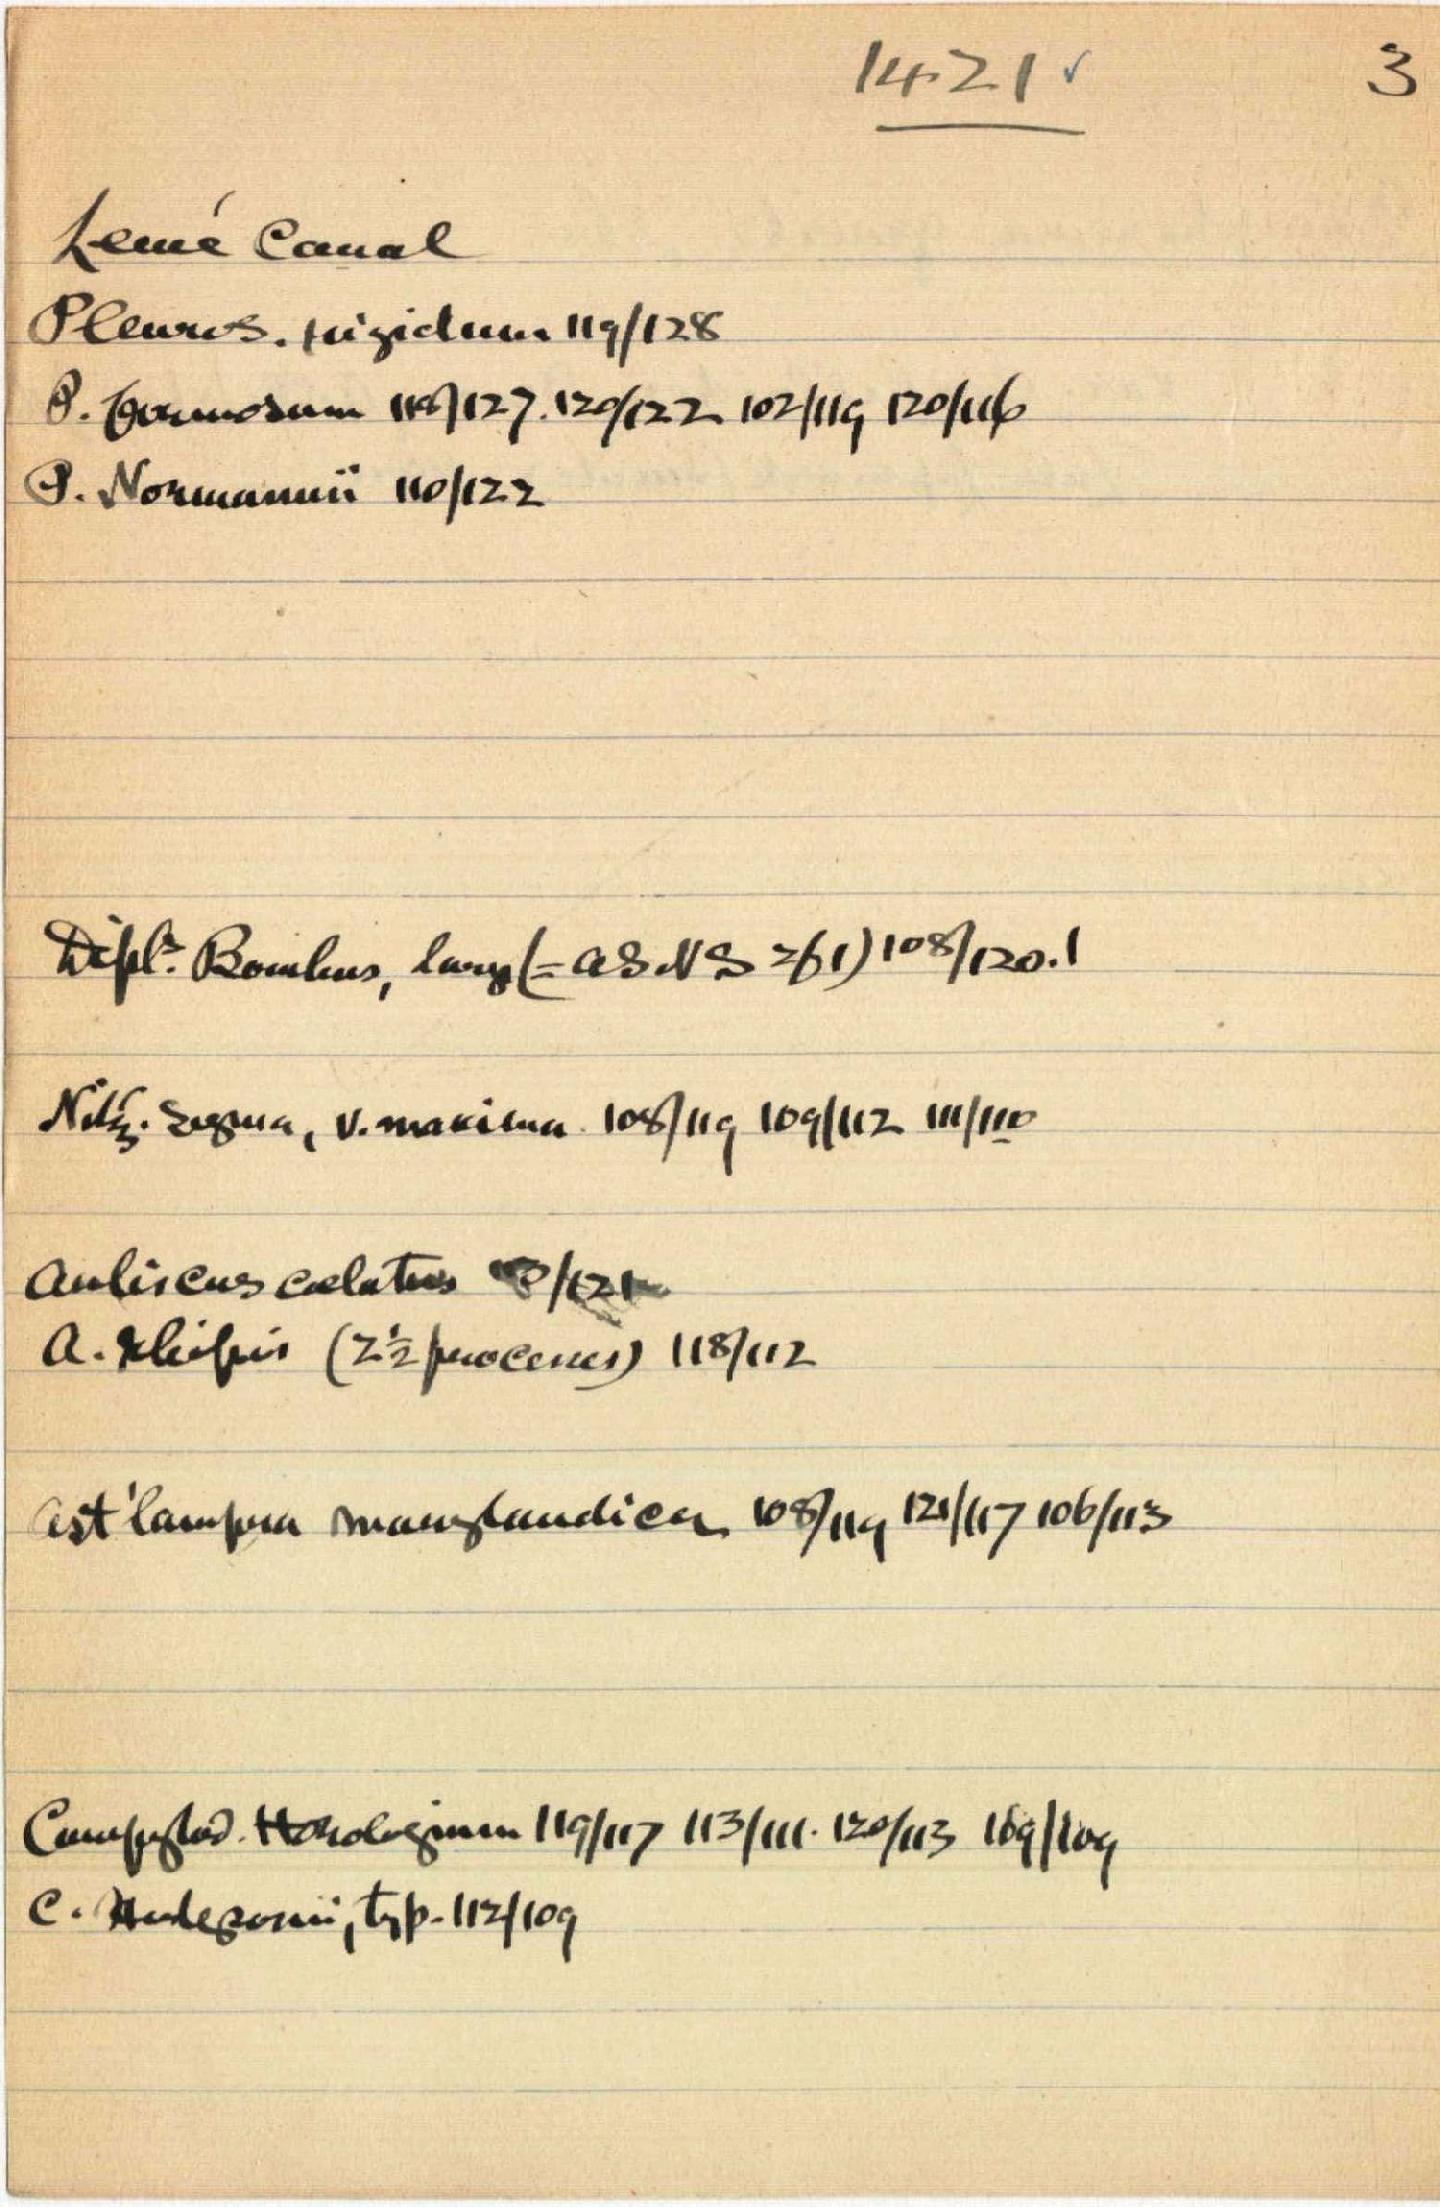 1421 ✓ 3
Lemé Canal
Pleuros. rigidum 119/128
P. formosum 118/127. 120/122 102/119 120/116
P. Normannii 110/122
Dipl.s Bombus, large (= ASNS 261) 108/120.1
Nitz. Sigma, v. maxima 108/119 109/112 111/110
Auliscus caelatus /121
A. (2½ processes) 118/112
Ast'lampra marylandica 108/119 121/117 106/113
Campylod. Horologium 119/117 113/111. 120/113 109/109
C. Hodgsonii, typ. 112/109